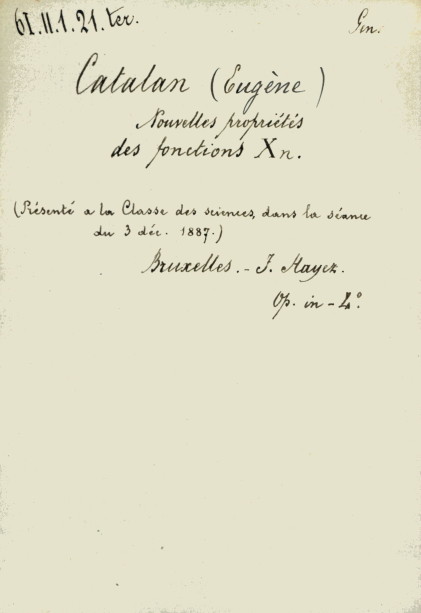 61.II.1.21.ter.
Gen.
Catalan (Eugène)
Nouvelles propriétés
des fonctions Xn.
(Présenté a la Classe des sciences, dans la séance
du 3 déc. 1887.)
Bruxelles. - F. Hayez.
Op. in - 4º.